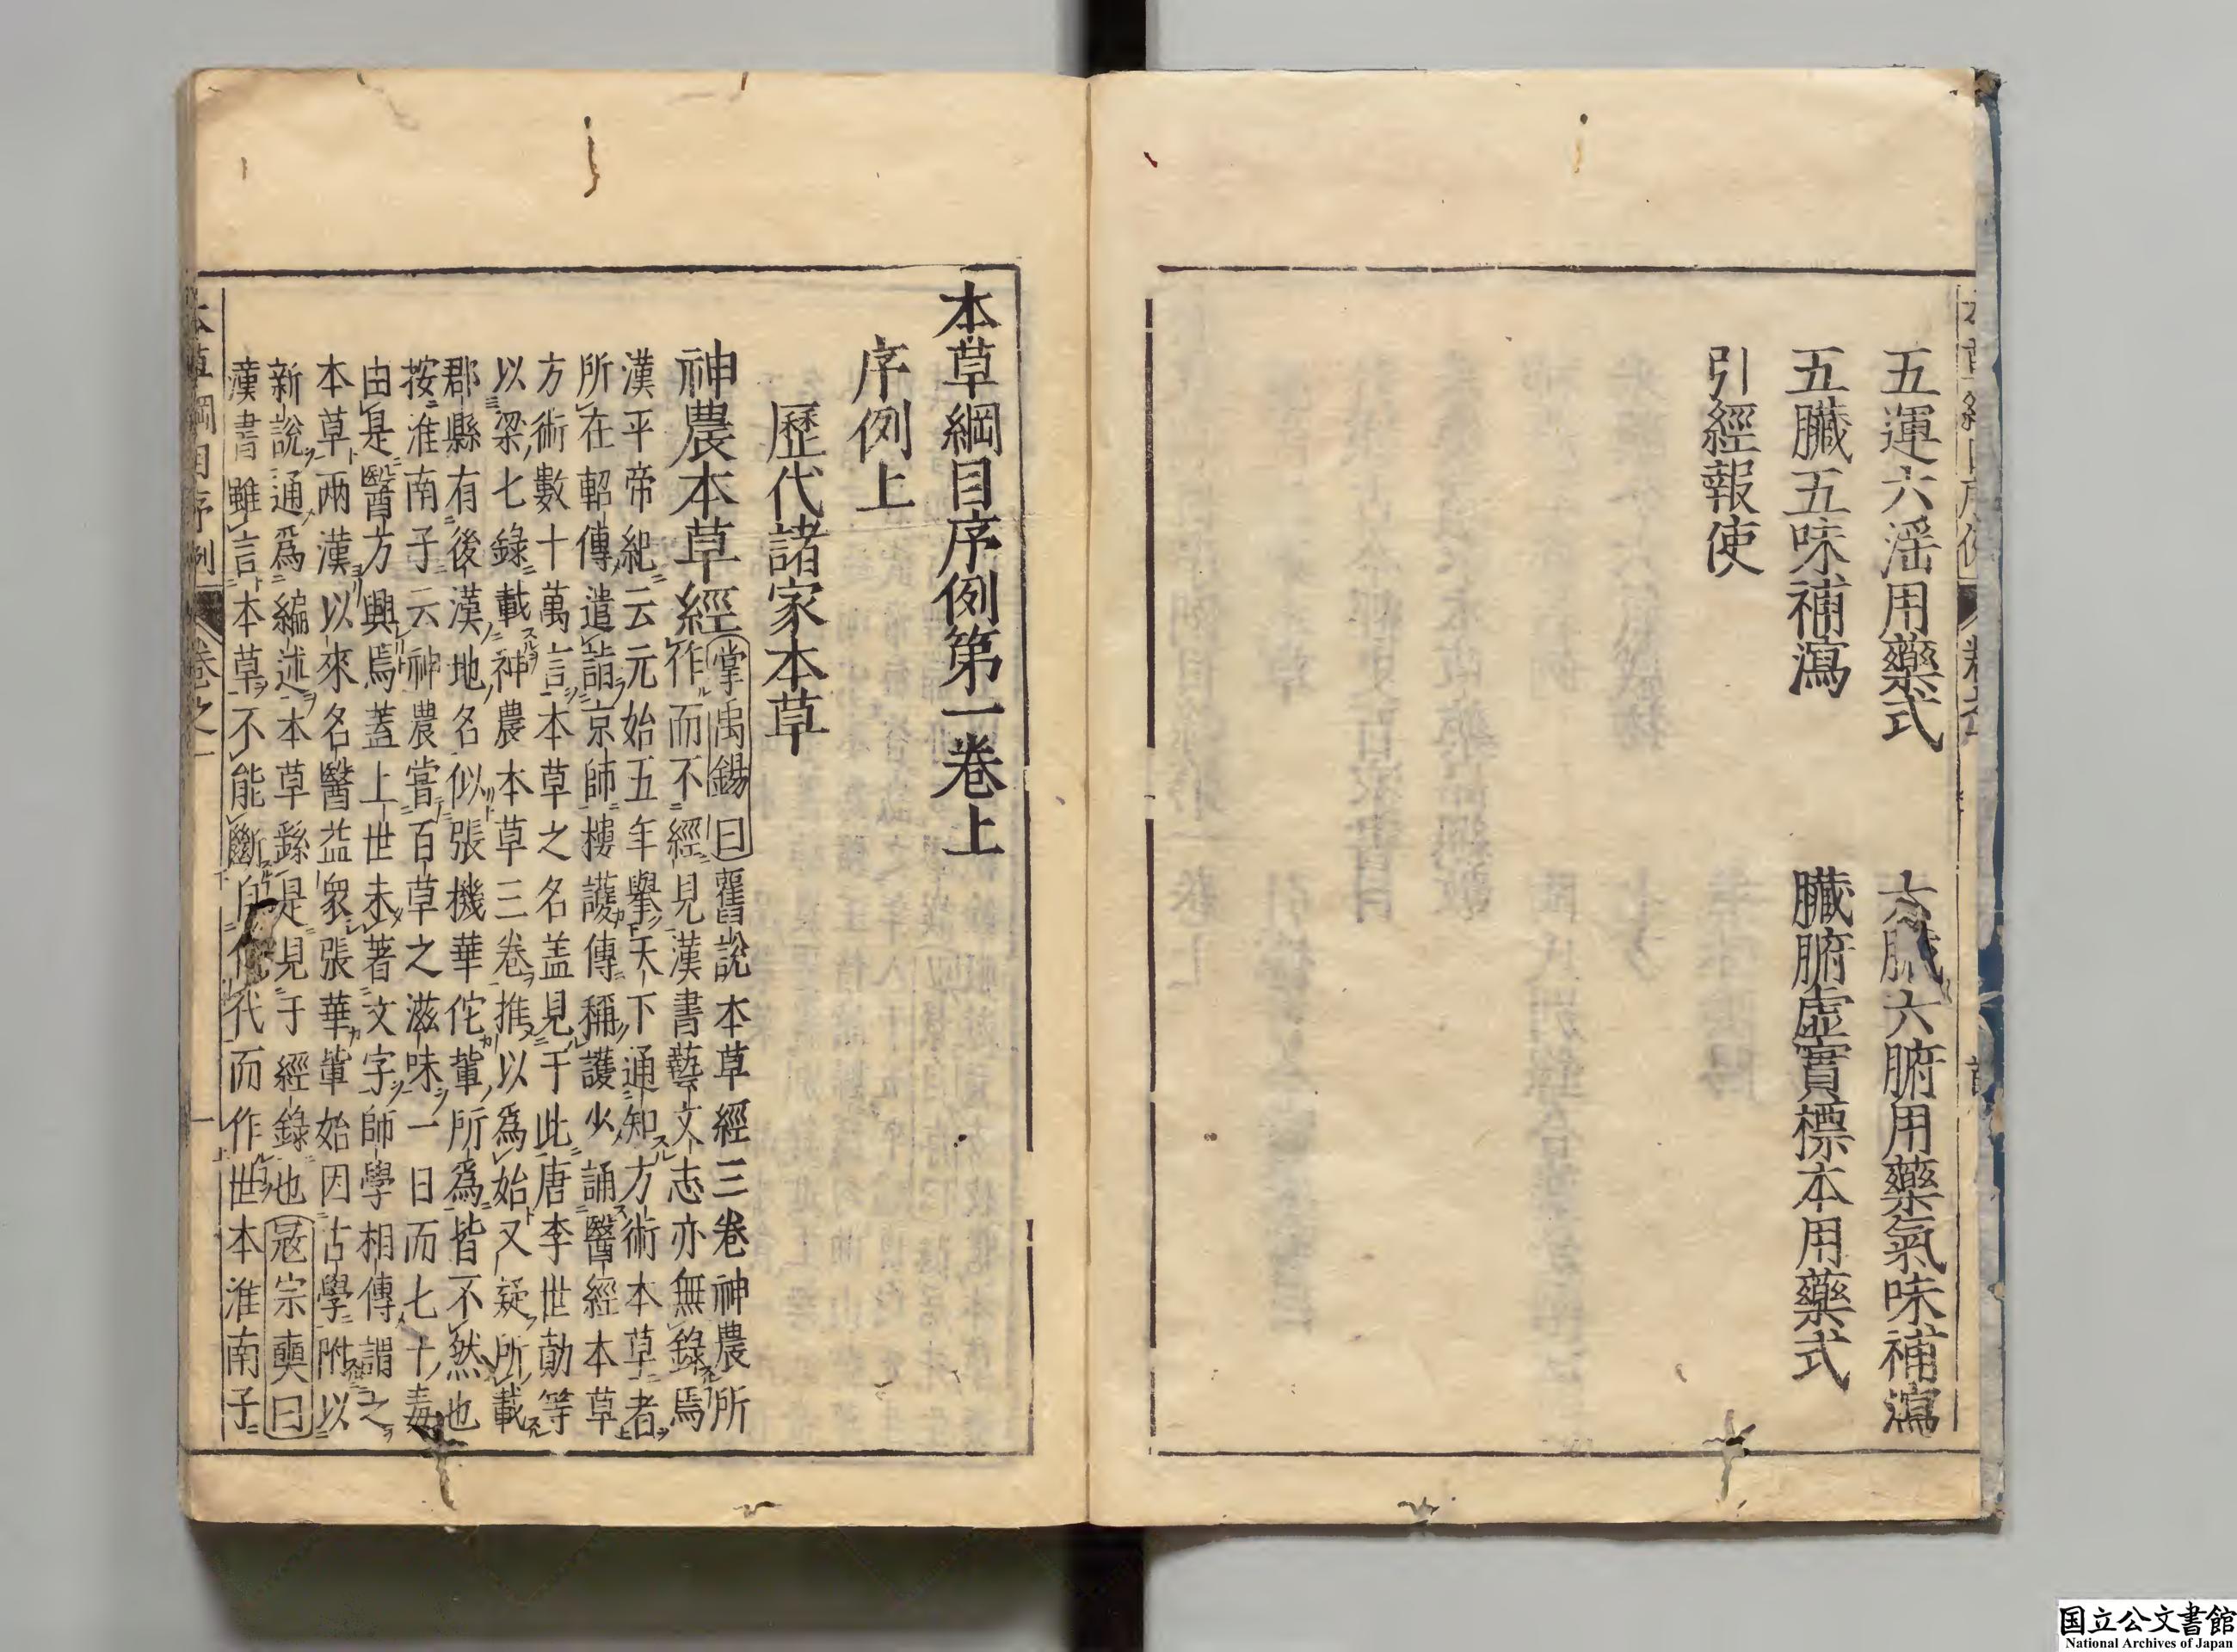 五運六淫用藥式　六臟六腑用藥氣味補瀉
五臟五味補瀉　臟腑虛實標本用藥式
引經報使
本草綱目序例第一卷上
序例上
歷代諸家本草
神農本草經 掌禹錫曰舊說本草經三卷神農所
作而不經見漢書藝文志亦無錄焉
漢平帝紀云元始五年舉天下通知方術本草者
所在軺傳遣詣京師樓護傳稱護少誦醫經本草
方術數十萬言本草之名盖見于此唐李世勣等
以梁七錄載神農本草三卷推以爲始又疑所載
郡縣有後漢地名似張機華佗軰所爲皆不然也
按淮南子云神農嘗百草之滋味一日而七十毒
由是醫方興焉蓋上世未著文字師學相傳謂之
本草兩漢以來名醫益衆張華軰始因古學附以
新說通爲編述本草繇是見于經錄也寇宗奭曰
漢書雖言本草不能斷自何代而作世本淮南子
本草綱目序例　卷之一　一
国立公文書館
National Archives of Japan